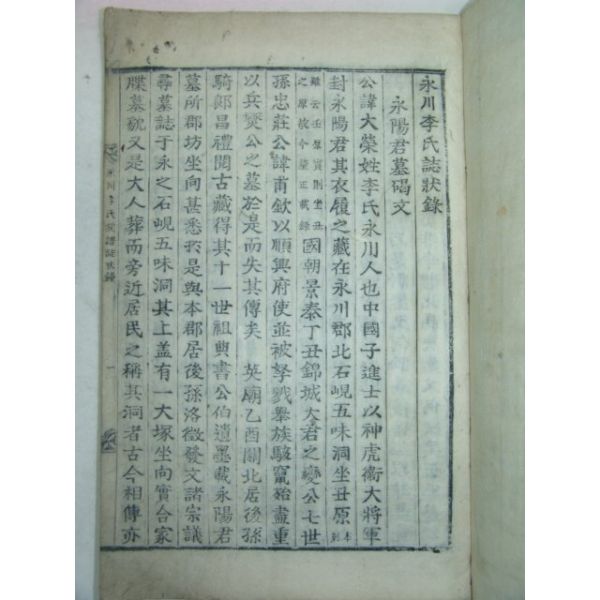 永川李氏誌狀錄
永陽君墓碣文
公諱大榮姓李氏永川人也中國子進士以神虎衛大將軍
封永陽君其衣履之藏在永川郡北石峴五味洞坐丑原本到
雖云壬坐實則坐丑之原故今釐正載錄國朝景泰丁丑錦城大君之變公七世
孫忠莊公諱甫欽以順興府使並被孥戮擧族駭竄殆盡重
以兵燹公之墓於是而失其傳矣 英廟乙酉關北居後孫
騎郞昌禮閱古藏得其十一世祖典書公伯遺墨載永陽君
墓所郡坊坐向甚悉於是與本郡居後孫洛徵發文諸宗議
尋墓誌于永之石峴五味洞其上盖有一大塚坐向實合家
牒墓貌又是大人葬而旁近居民之稱其洞者古今相傳亦
永川李氏誌狀錄
一